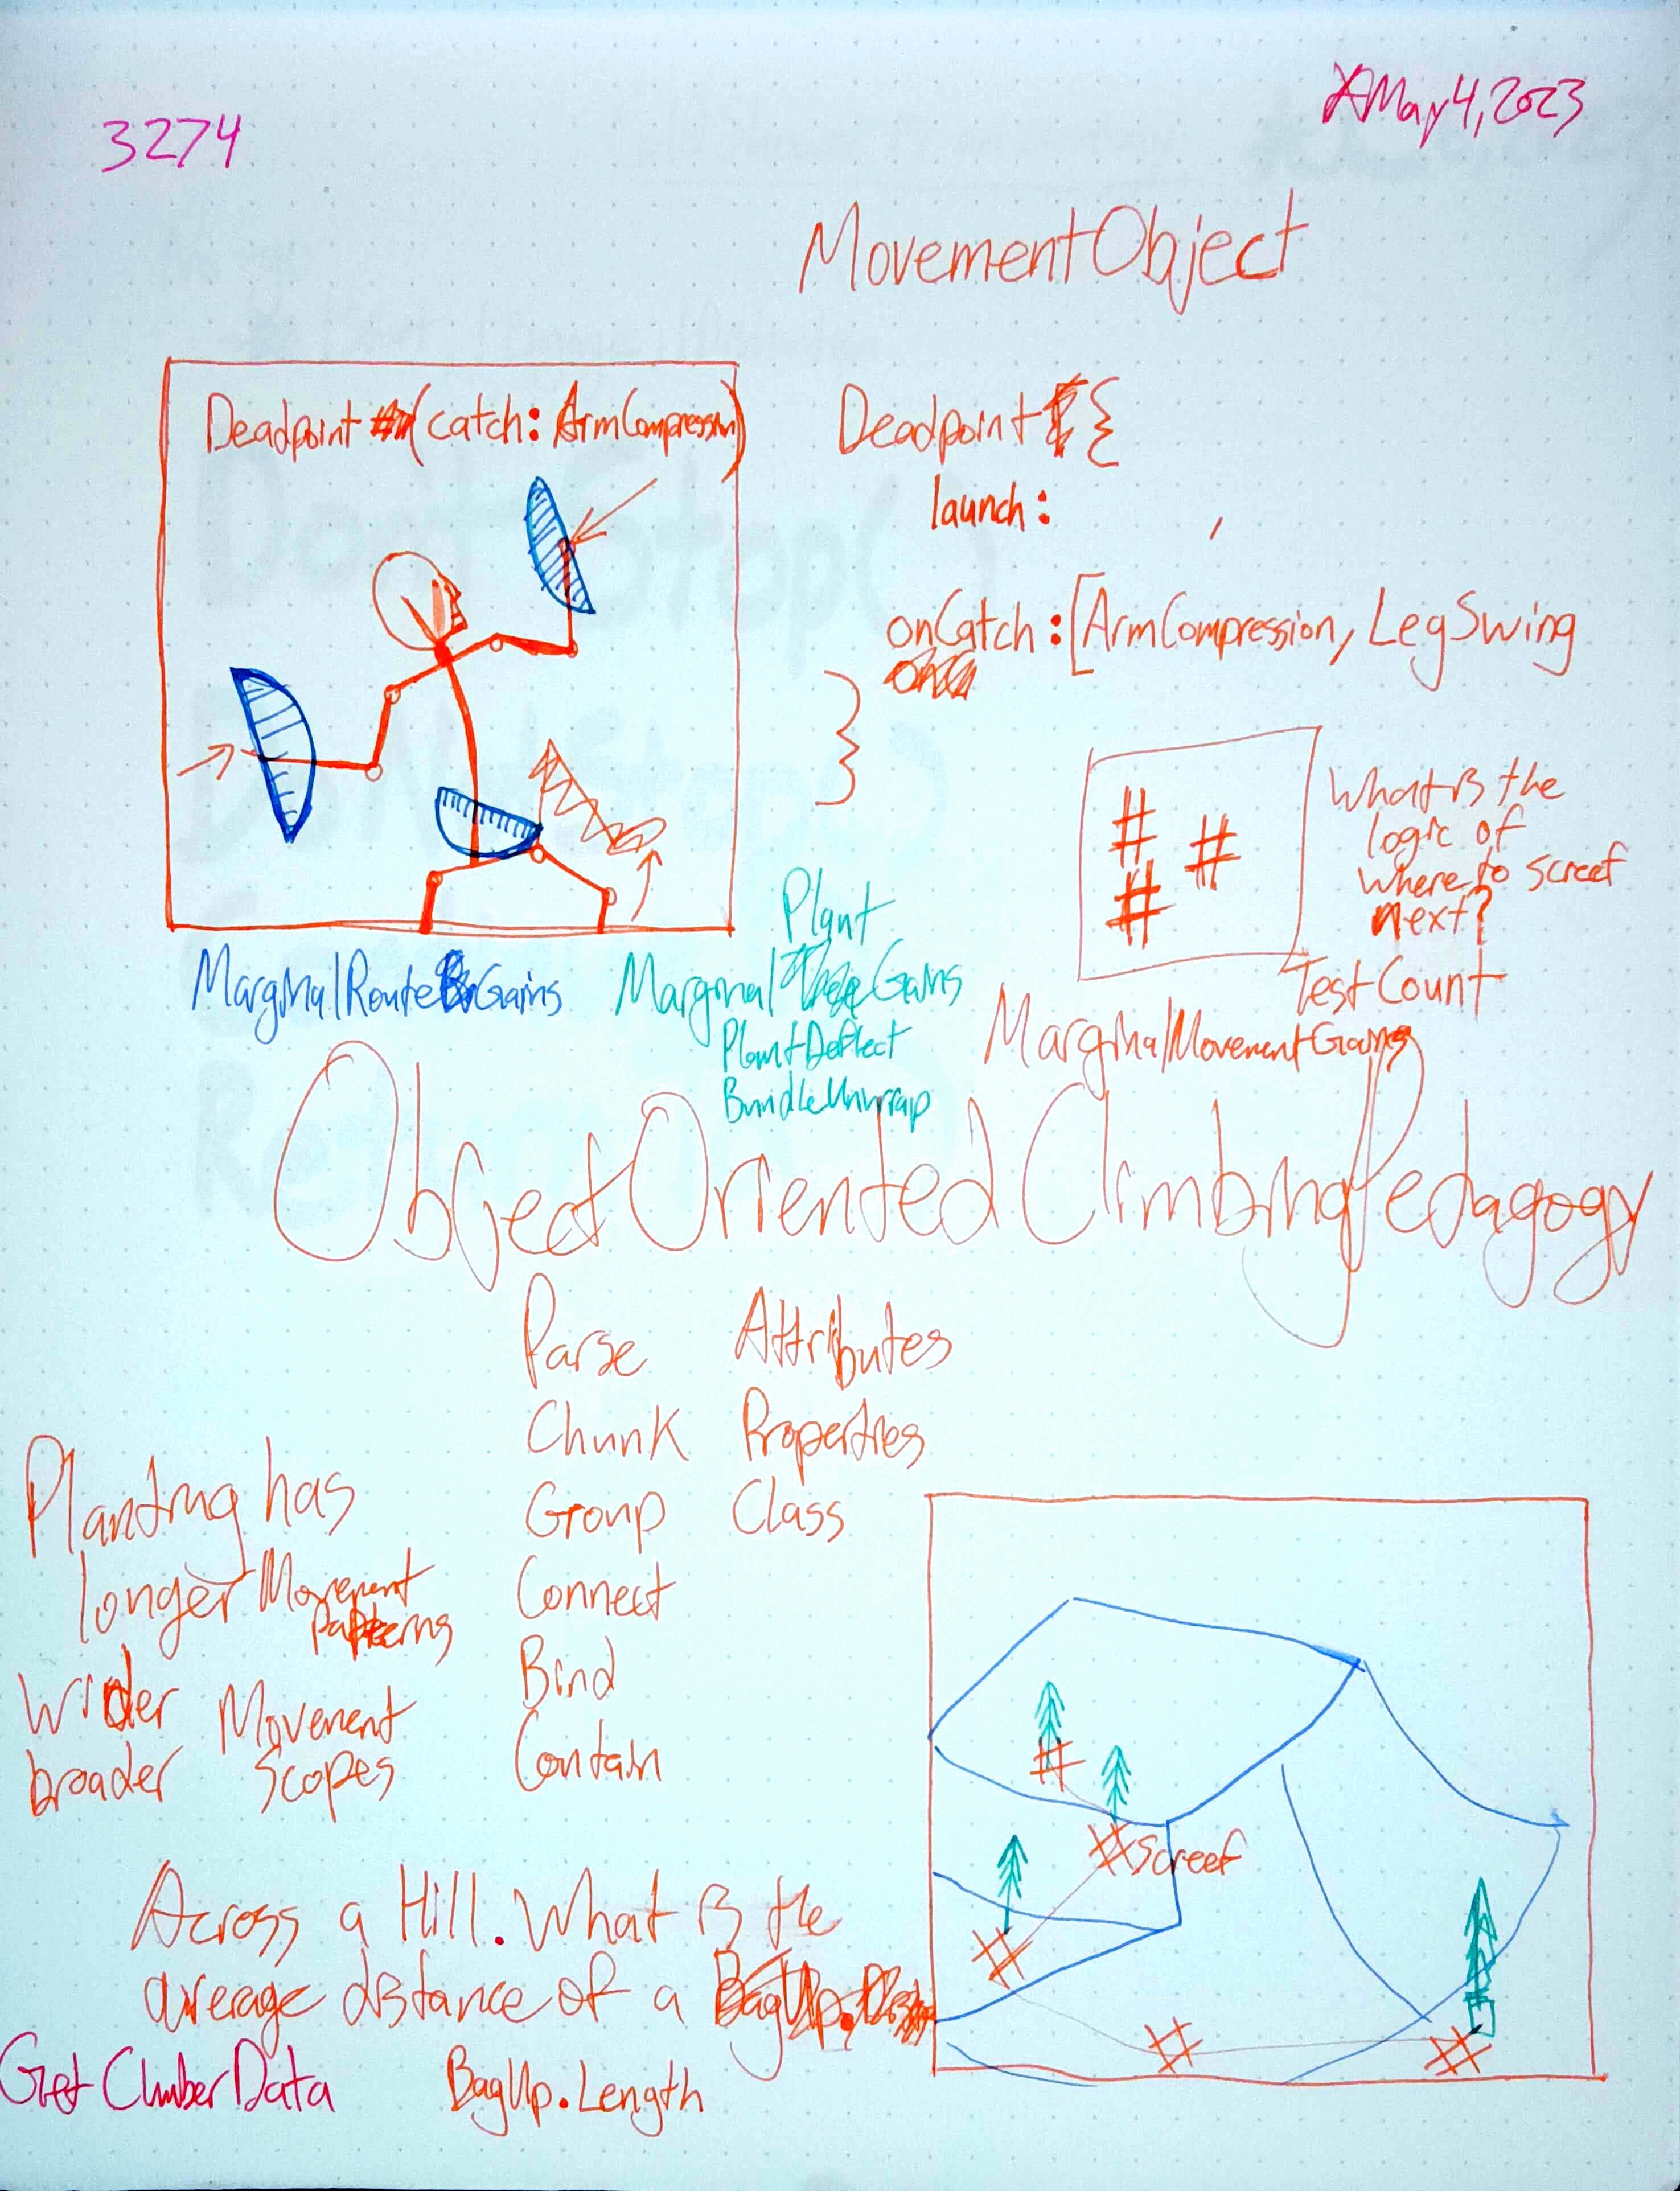 3274
May 4, 2023
MovementObject
Deadpoint (catch: ArmCompression)
Deadpoint {
launch:
,
onCatch: [ArmCompression, LegSwing
}
What is the
logic of
where to screef
next?
TestCount
MarginalRouteGains
Plant
MarginalGains
PlantDeflect
BundleUnwrap
MarginalMovementGains
ObjectOrientedClimbingPedagogy
Parse Attributes
Chunk Properties
Group Class
Connect
Bind
Contain
Planting has
longer Movement
Patterns
Wider Movement
broader Scopes
screef
Across a Hill. What is the
average distance of a BagUp.
GetClimberData
BagUp.Length